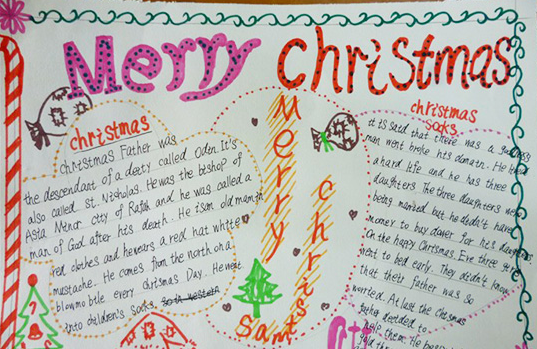 Merry christmas
christmas
christmas Father was
the descendant of a deety called Odin. It's
also called St. Nicholas. He was the bishop of
Asia Minor city of and he was called a
man of God after his death. He is an old man in
red clothes and he wears a red hat white
mustache. He comes from the north on a
blowmobile every christmas Day. He went
into children's socks.
Merry
christmas
Santa
christmas
socks
it is said that there was a
man went broke his He
a hard life and he has three
daughters The three daughters were
being married but he didn't have
money to buy for his daughters
On the happy Christmas Eve three girls
went to bed early. They didn't know
that their father was so
worried. At last the
father decided to
help them. He